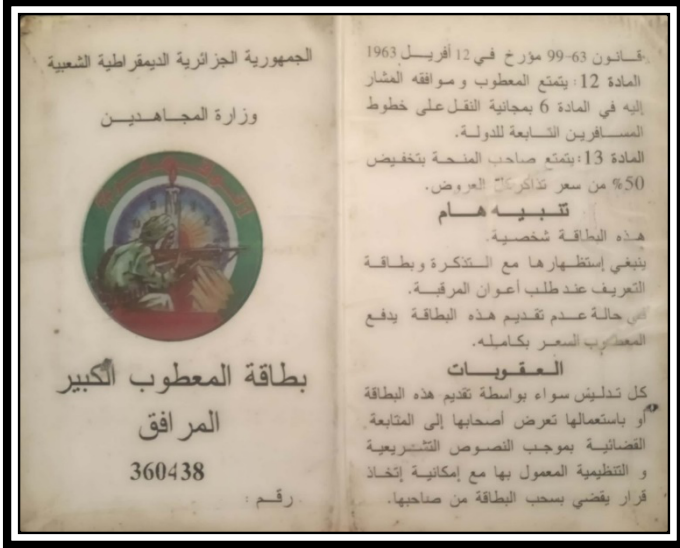 الجمهورية الجزائرية الديمقراطية الشعبية
وزارة المجاهدين
بطاقة المعطوب الكبير
المرافق
360438
رقم :
قانون 63-99 مؤرخ في 12 أفريل 1963
المادة 12: يتمتع المعطوب و موافقه المشار
إليه في المادة 6 بمجانية النقل على خطوط
المسافرين التابعة للدولة.
المادة 13: يتمتع صاحب المنحة بتخفيض
50% من سعر تذاكر كل العروض.
تنبيه هام
هذه البطاقة شخصية.
ينبغي إستظهارها مع التذكرة وبطاقة
التعريف عند طلب أعوان المرقبة.
في حالة عدم تقديم هذه البطاقة يدفع
المعطوب السعر بكامله.
العقوبات
كل تدليس سواء بواسطة تقديم هذه البطاقة
أو باستعمالها تعرض أصحابها إلى المتابعة
القضائية بموجب النصوص التشريعية
و التنظيمية المعمول بها مع إمكانية إتخاذ
قرار يقضي بسحب البطاقة من صاحبها.